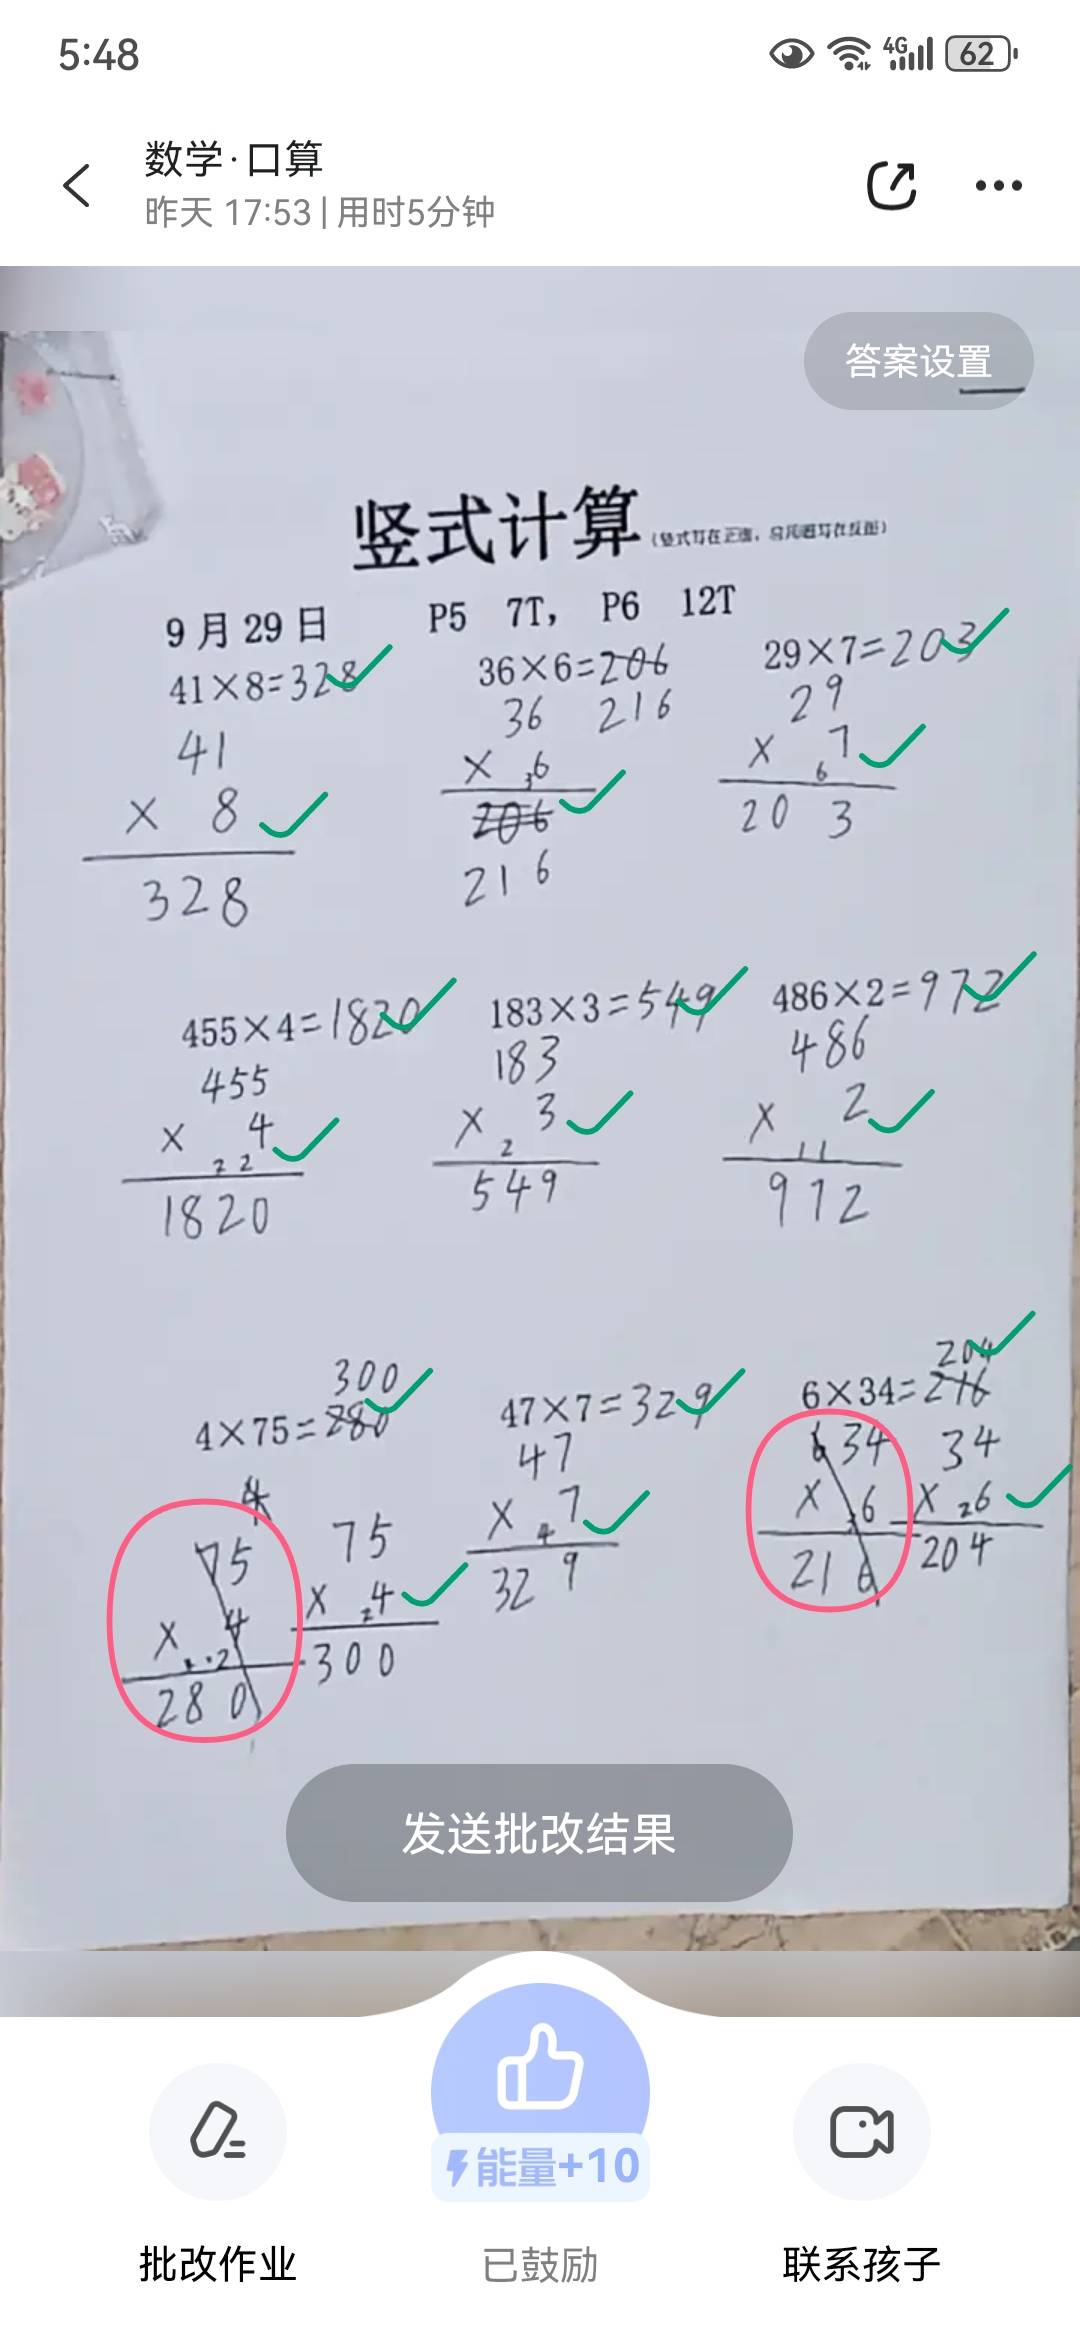 5:48
4G 62
数学·口算
昨天 17:53 | 用时5分钟
答案设置
竖式计算
9月29日 P5 7T， P6 12T
41×8=328
36×6=206
216
29×7=203
41
× 8
328
36
× 3 6
206
216
29
× 6 7
20 3
455×4=1820
183×3=549
486×2=972
455
× 2 2 4
1820
183
× 2 3
549
486
× 1 1 2
972
300
4×75=280
47×7=329
204
6×34=216
4
75
× 2 4
280
75
× 2 4
300
47
× 4 7
329
634
× 6
216
34
× 2 6
204
发送批改结果
能量+10
批改作业
已鼓励
联系孩子